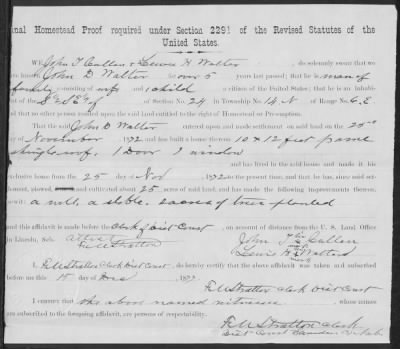 nal Homestead Proof required under Section 2291 of the Revised Statutes of the
United States.
WE, John T Cullen & Lewis H Walter do solemnly swear that we
John D Walter for over 5 years last passed; that he is man of
family consisting of wife and 1 child a citizen of the United States; that he is an inhabi-
of the of Section No. 24 in Township No. 14 N of Range No. 6 E.
no other person resided upon the said land entitled to the right of Homestead or Preemption.
That the said John D Walter entered upon and made settlement on said land on the 25th
of November 1872 and has built a house thereon 10 x 12 feet frame
shingle roof. 1 Door 1 window
and has lived in the said house and made it his
exclusive home from the 25 day of Nov 1872 to the present time, and that he has, since said set-
tlement, plowed, and cultivated about 25 acres of said land, and has made the following improvements thereon,
a well, a stable. 2 acres of trees planted
and this affidavit is made before the Clerk of Dist Court, on account of distance from the U. S. Land Office
in Lincoln, Neb. Attest John T his x mark Cullen
F.M. Stratton Lewis H his x mark Walters
I, F.M. Stratton Clerk Dist Court, do hereby certify that the above affidavit was taken and subscribed
before me this 15 day of 1877
F.M. Stratton Clerk Dist Court
I CERTIFY that the above named witnesses whose names
are subscribed to the foregoing affidavit, are persons of respectability.
F.M. Stratton Clerk
Dist Court